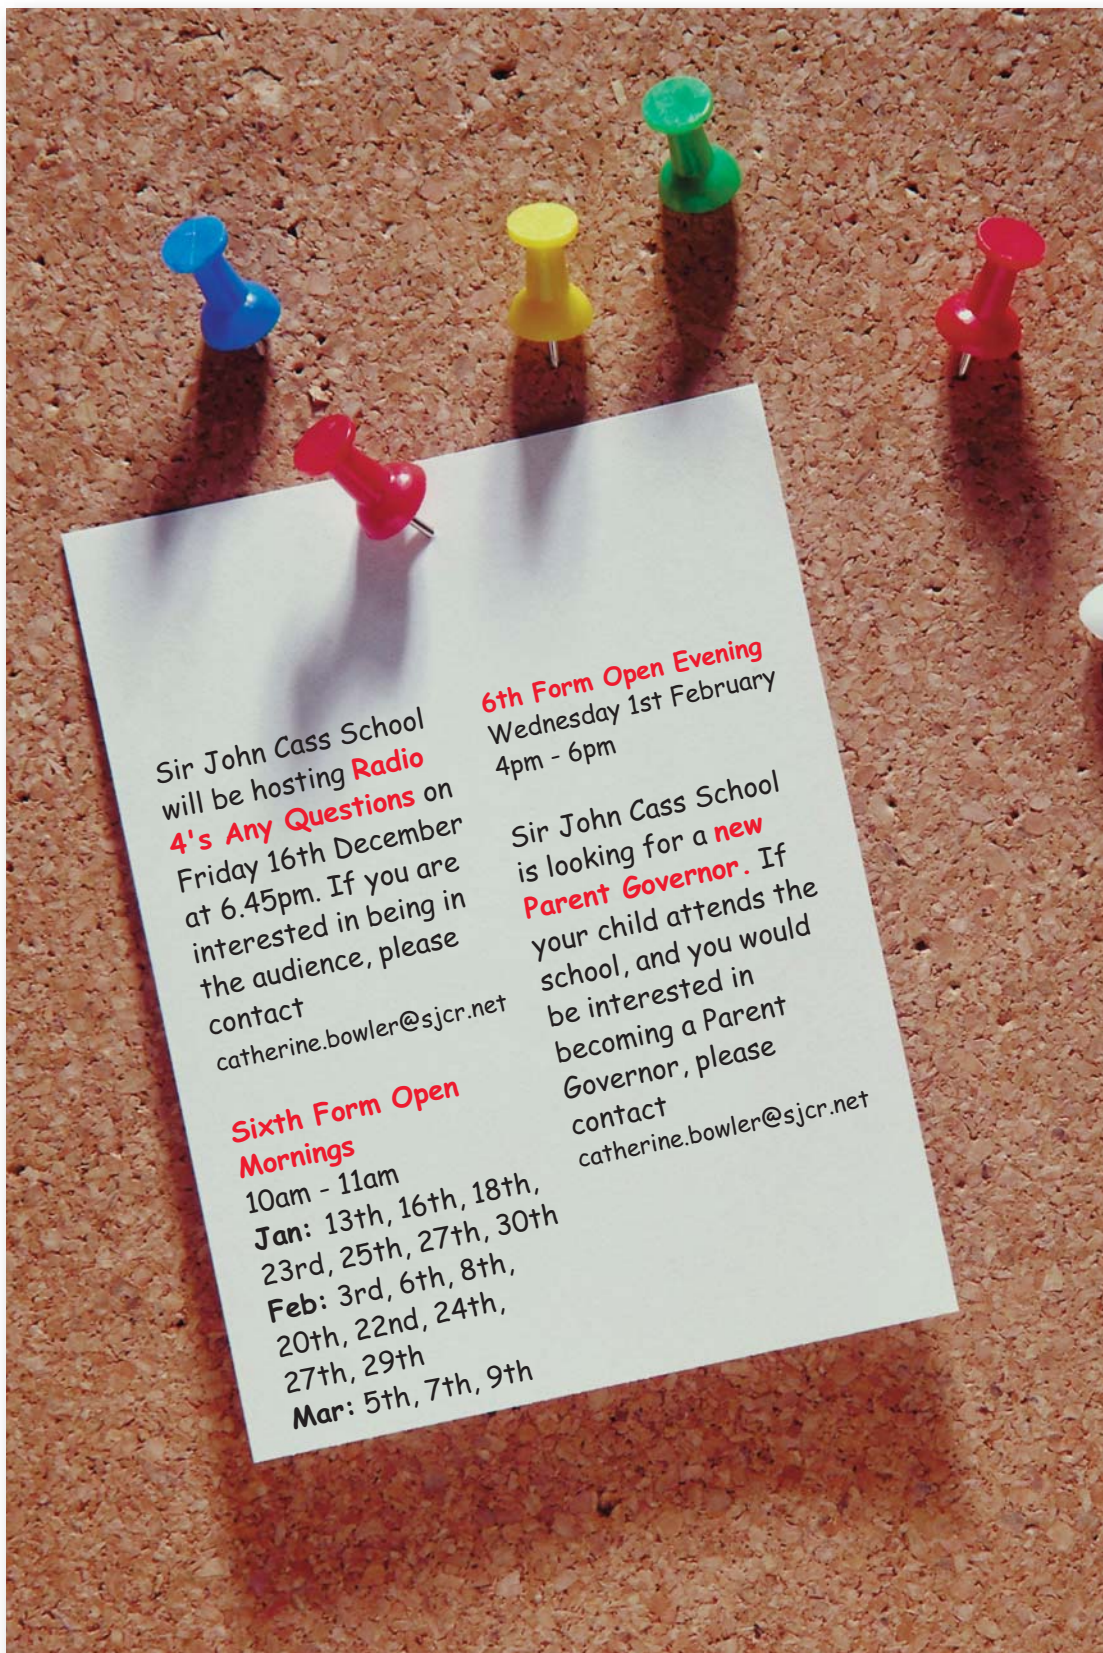 Sir John Cass School
will be hosting Radio
4's Any Questions on
Friday 16th December
at 6.45pm. If you are
interested in being in
the audience, please
contact
catherine.bowler@sjcr.net
Sixth Form Open
Mornings
10am - 11am
Jan: 13th, 16th, 18th,
23rd, 25th, 27th, 30th
Feb: 3rd, 6th, 8th,
20th, 22nd, 24th,
27th, 29th
Mar: 5th, 7th, 9th
6th Form Open Evening
Wednesday 1st February
4pm - 6pm
Sir John Cass School
is looking for a new
Parent Governor. If
your child attends the
school, and you would
be interested in
becoming a Parent
Governor, please
contact
catherine.bowler@sjcr.net